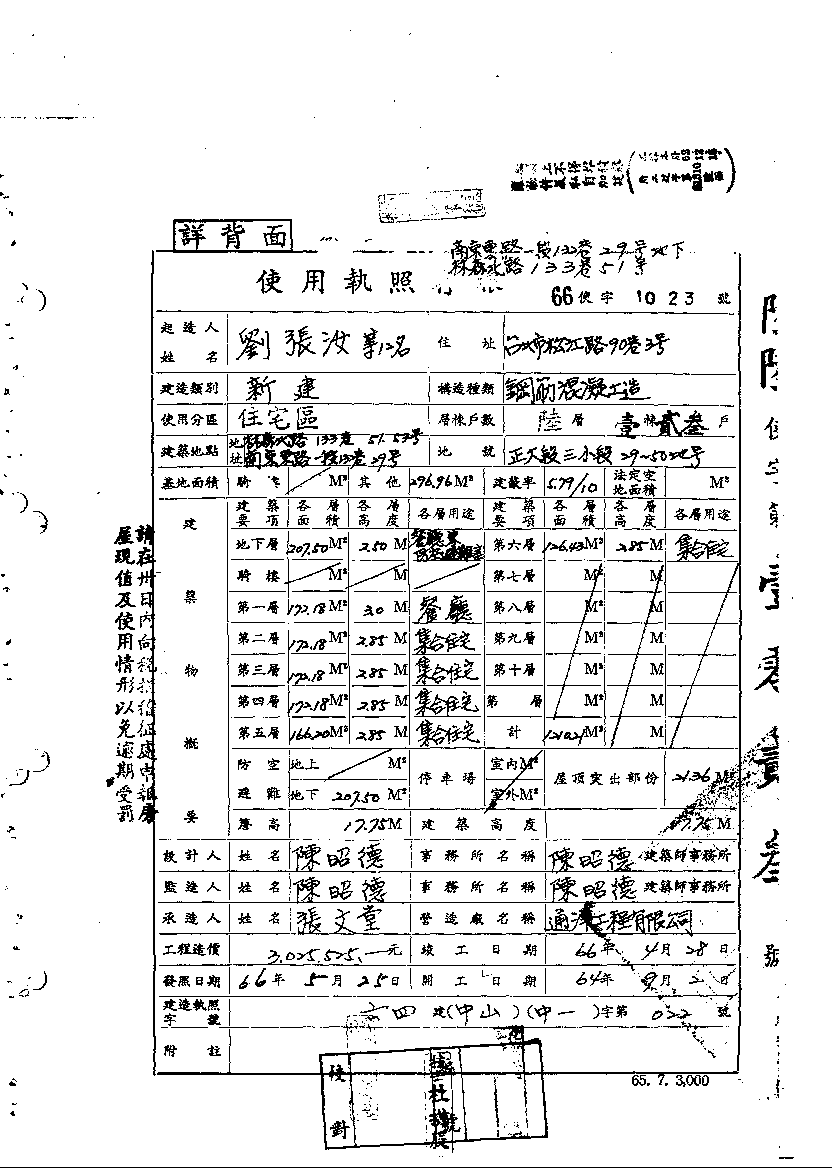 詳背面
南京東路一段132巷29号地下
林森北路133巷51号
使用執照存根
66使字1023號
起造人姓名 劉張汝 等12名 住址 台北市松江路90巷3号
建造類別 新建 構造種類 鋼筋混凝土造
使用分區 住宅區 層棟戶數 陸層 壹棟 貳叁戶
建築地點 地址 林森北路133巷 51. 53号
南京東路一段132巷29号
地號 正大段三小段29~50地号
基地面積 騎樓 M² 其他 296.96M² 建蔽率 5.79/10 法定空地面積 M²
建築物概要
建築要項 各層面積 各層高度 各層用途 建築要項 各層面積 各層高度 各層用途
地下層 207.50M² 2.50M 餐廳 第六層 126.43M² 2.85M 集合住宅
騎樓 M² M 第七層 M² M
第一層 172.18M² 3.0M 餐廳 第八層 M² M
第二層 172.18M² 2.85M 集合住宅 第九層 M² M
第三層 172.18M² 2.85M 集合住宅 第十層 M² M
第四層 172.18M² 2.85M 集合住宅 第 層 M² M
第五層 166.20M² 2.85M 集合住宅 計 M² M
防空避難 地上 M² 停車場 室內M² 屋頂突出部份 21.36M²
地下 207.50 室外M²
簷高 17.75M 建築高度 17.75M
設計人 姓名 陳昭德 事務所名稱 陳昭德建築師事務所
監造人 姓名 陳昭德 事務所名稱 陳昭德建築師事務所
承造人 姓名 張文堂 營造廠名稱 工程有限公司
工程造價 3,025,525.一元 竣工日期 66年4月28日
發照日期 66年5月25日 開工日期 64年9月2日
建造執照字號 六四建(中山)(中一)字第022號
附註
65. 7. 3,000
校對
請在卅日內向稅捐稽征處申報房
屋現值及使用情形以免逾期受罰
陸陸使字第壹零貳叁號